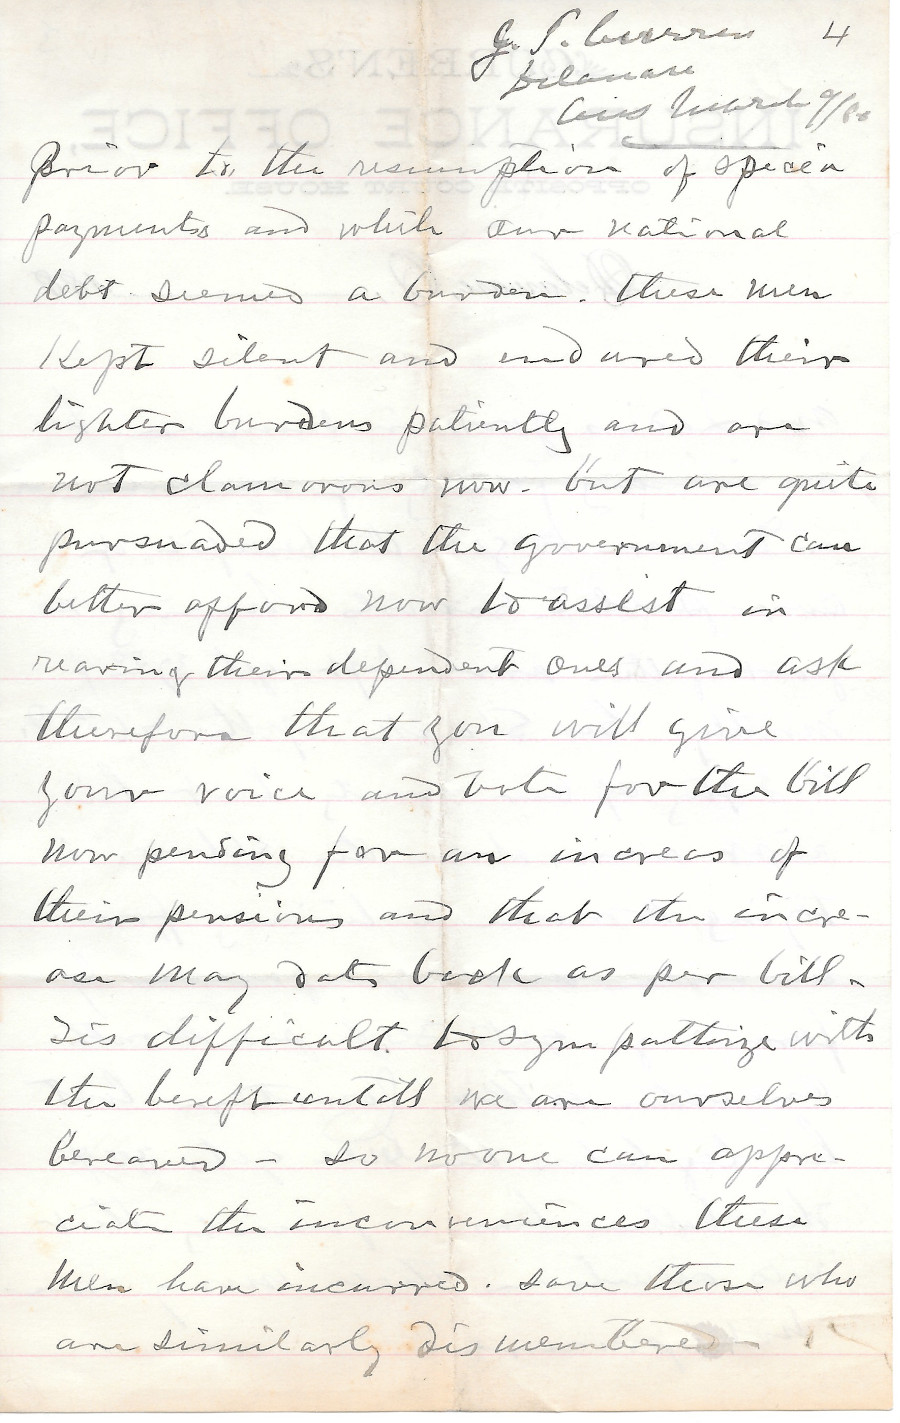 J. S. Curren 4
Delaware
March 9/80
Prior to the resumption of specia
payments and while our national
debt seemed a burden. these men
Kept silent and endured their
lighter burdens patiently and are
not clamorous now. but are quite
pursuaded that the government can
better afford now to assist in
rearing their dependent ones and ask
therefore that you will give
your voice and vote for the bill
now pending for an increas of
their pensions and that the incre-
ase may date back as per bill.
Tis difficult to sympathize with
the bereft untill we are ourselves
bereaved - so no one can appre-
ciate the inconveniences these
men have incurred. save those who
are similarly dismembered -
QUEEN'S
INSURANCE OFFICE,
OPPOSITE COURT HOUSE.